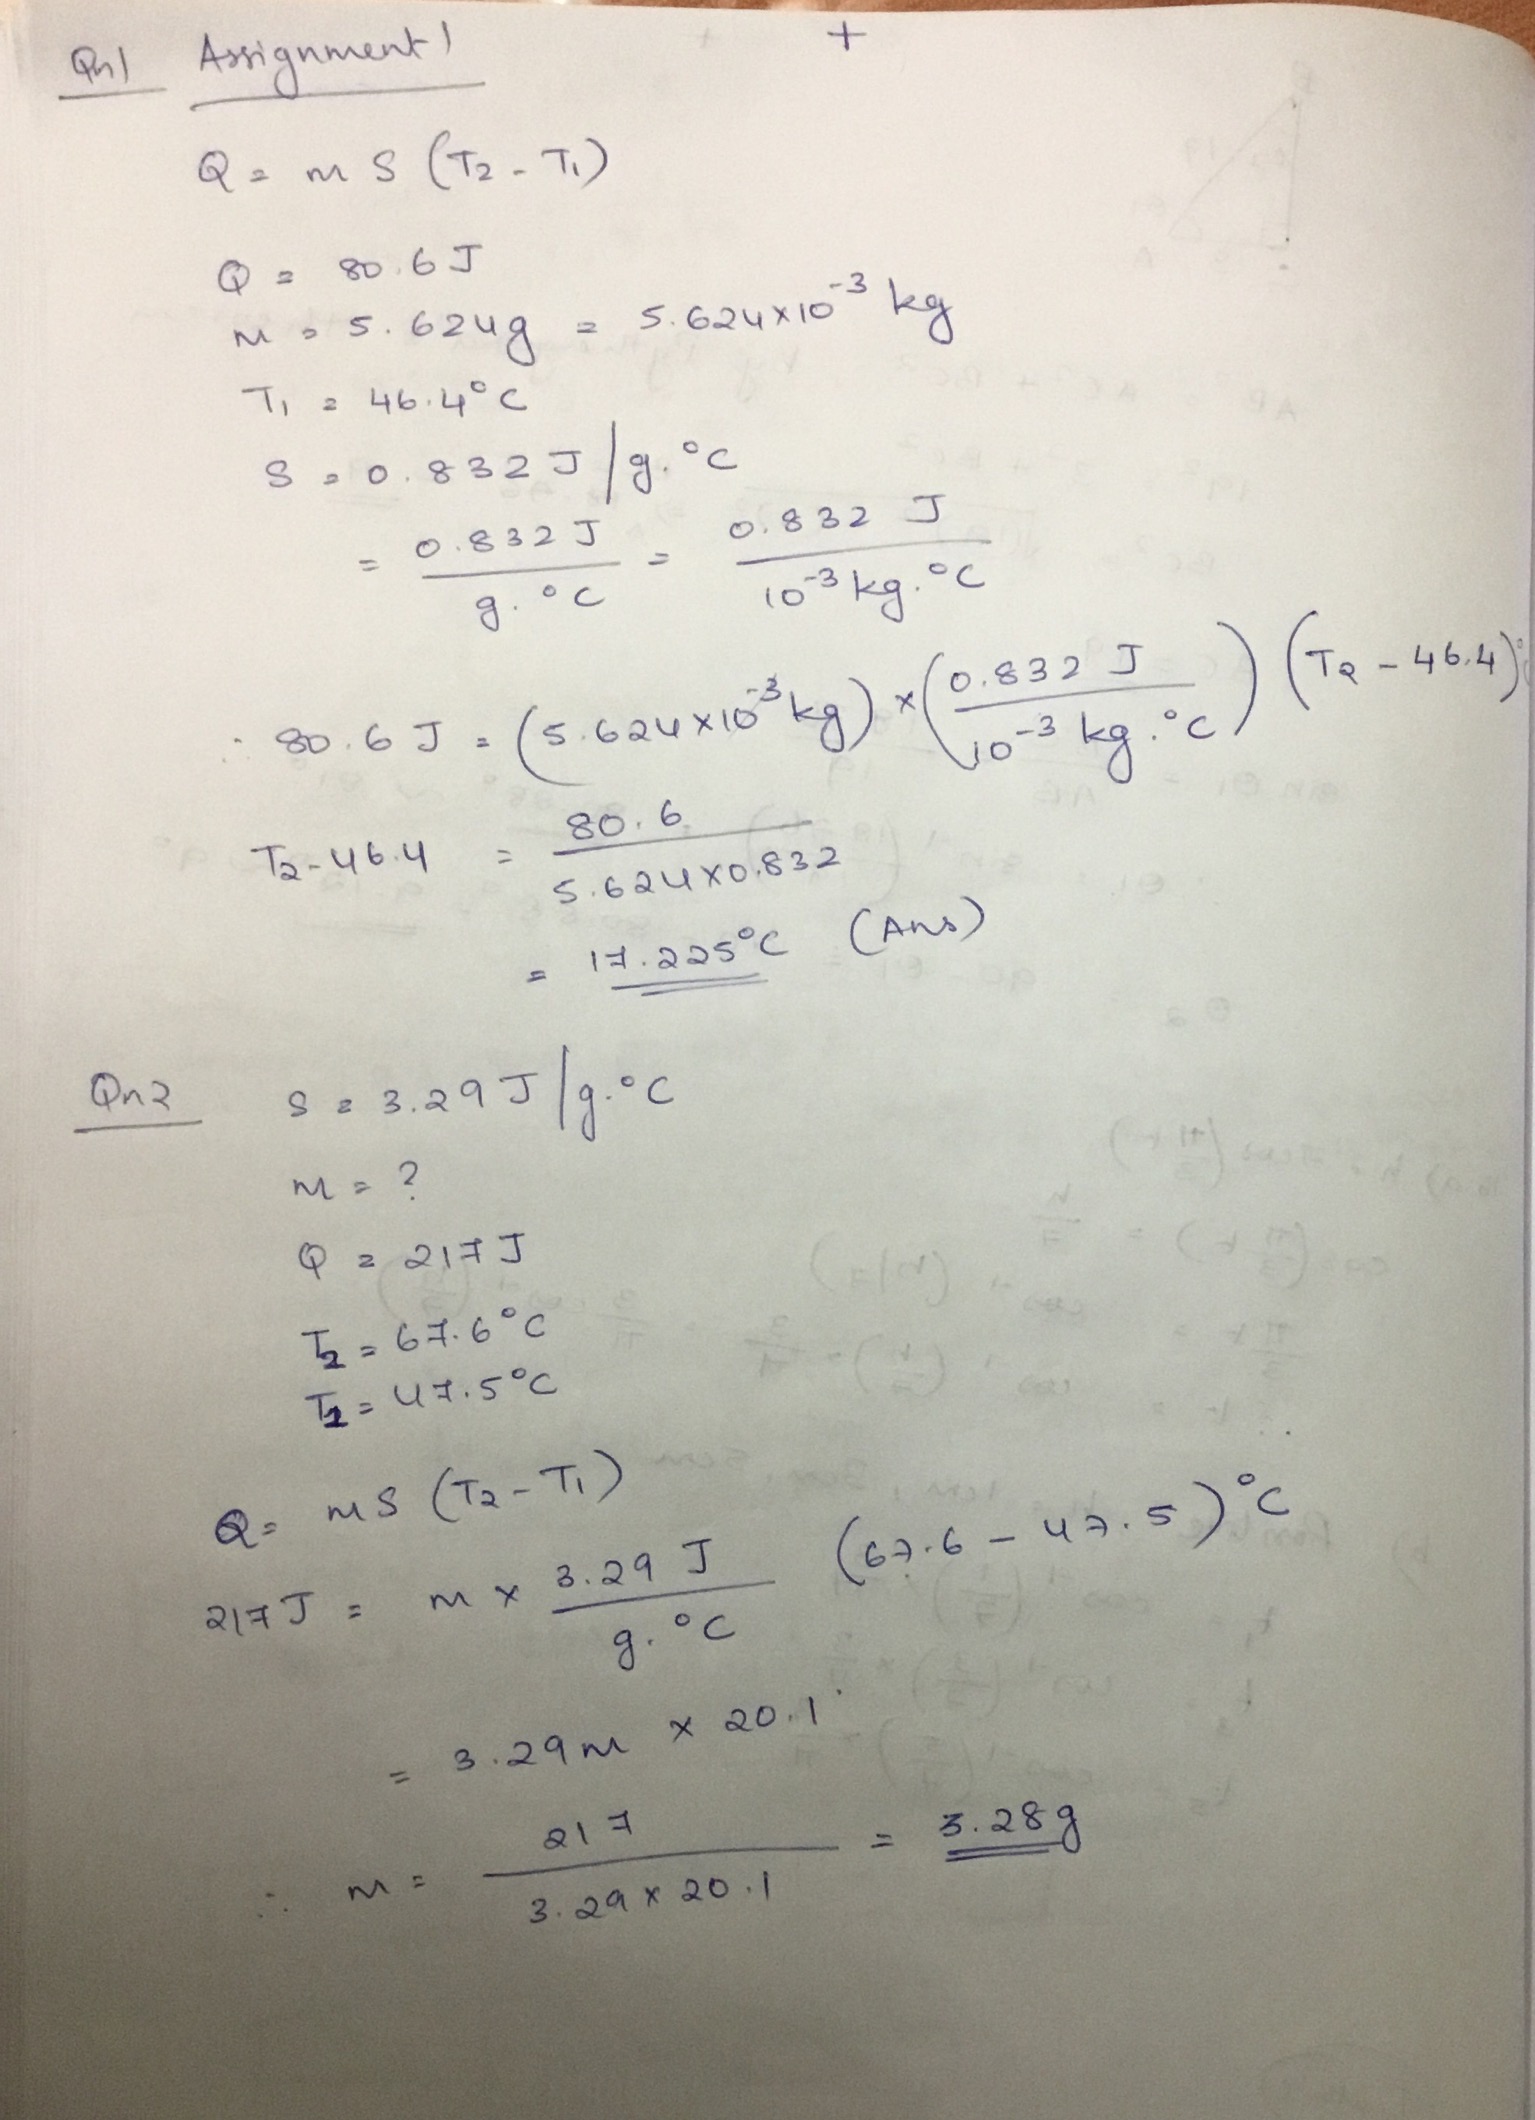 Qn1 Assignment 1
+
Q = m S (T₂ - T₁)
Q = 80.6 J
m = 5.624g = 5.624×10⁻³ kg
T₁ = 46.4°C
S = 0.832 J/g.°C
= 0.832 J / g.°C = 0.832 J / 10⁻³ kg.°C
∴ 80.6 J = (5.624×10⁻³ kg) × (0.832 J / 10⁻³ kg.°C) (T₂ - 46.4)°
T₂-46.4 = 80.6 / 5.624×0.832
= 17.225°C (Ans)
Qn2 S = 3.29 J/g.°C
m = ?
Q = 217 J
T₂ = 67.6°C
T₁ = 47.5°C
Q = mS (T₂ - T₁)
217 J = m × 3.29 J / g.°C (67.6 - 47.5)°C
= 3.29m × 20.1
∴ m = 217 / 3.29 × 20.1 = 3.28g